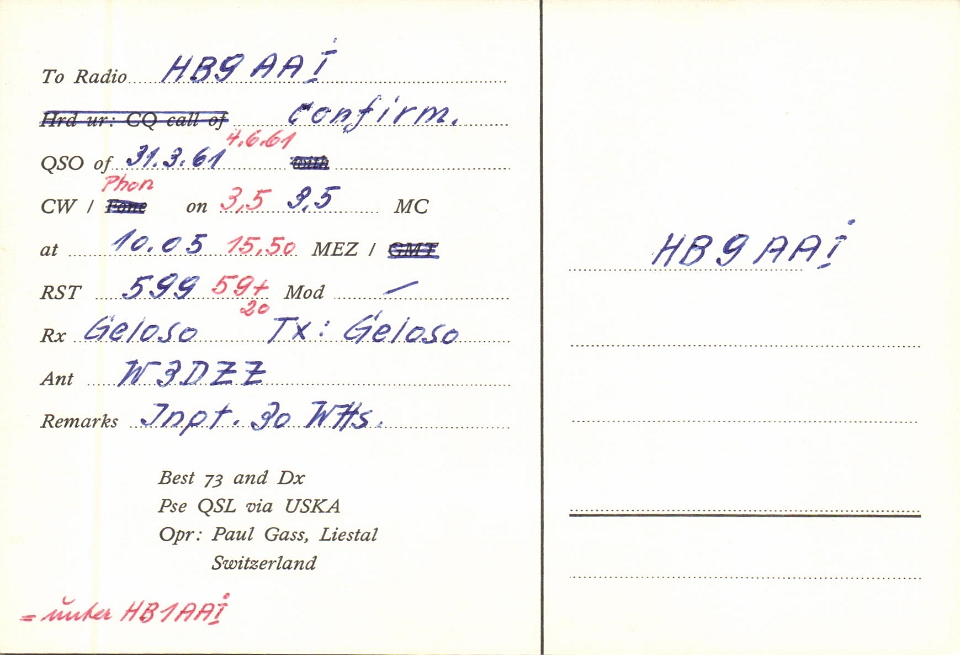 To Radio HB9AAI
Hrd ur: CQ call of confirm.
4.6.61
QSO of 31.3.61
Phon
CW / Fone on 3,5 3,5 MC
at 10.05 15.50 MEZ / GMT
RST 599 59+ Mod —
20
Rx Geloso Tx: Geloso
Ant W3DZZ
Remarks Inpt. 30 Wtts.
Best 73 and Dx
Pse QSL via USKA
Opr: Paul Gass, Liestal
Switzerland
= unter HB1AAI
HB9AAI